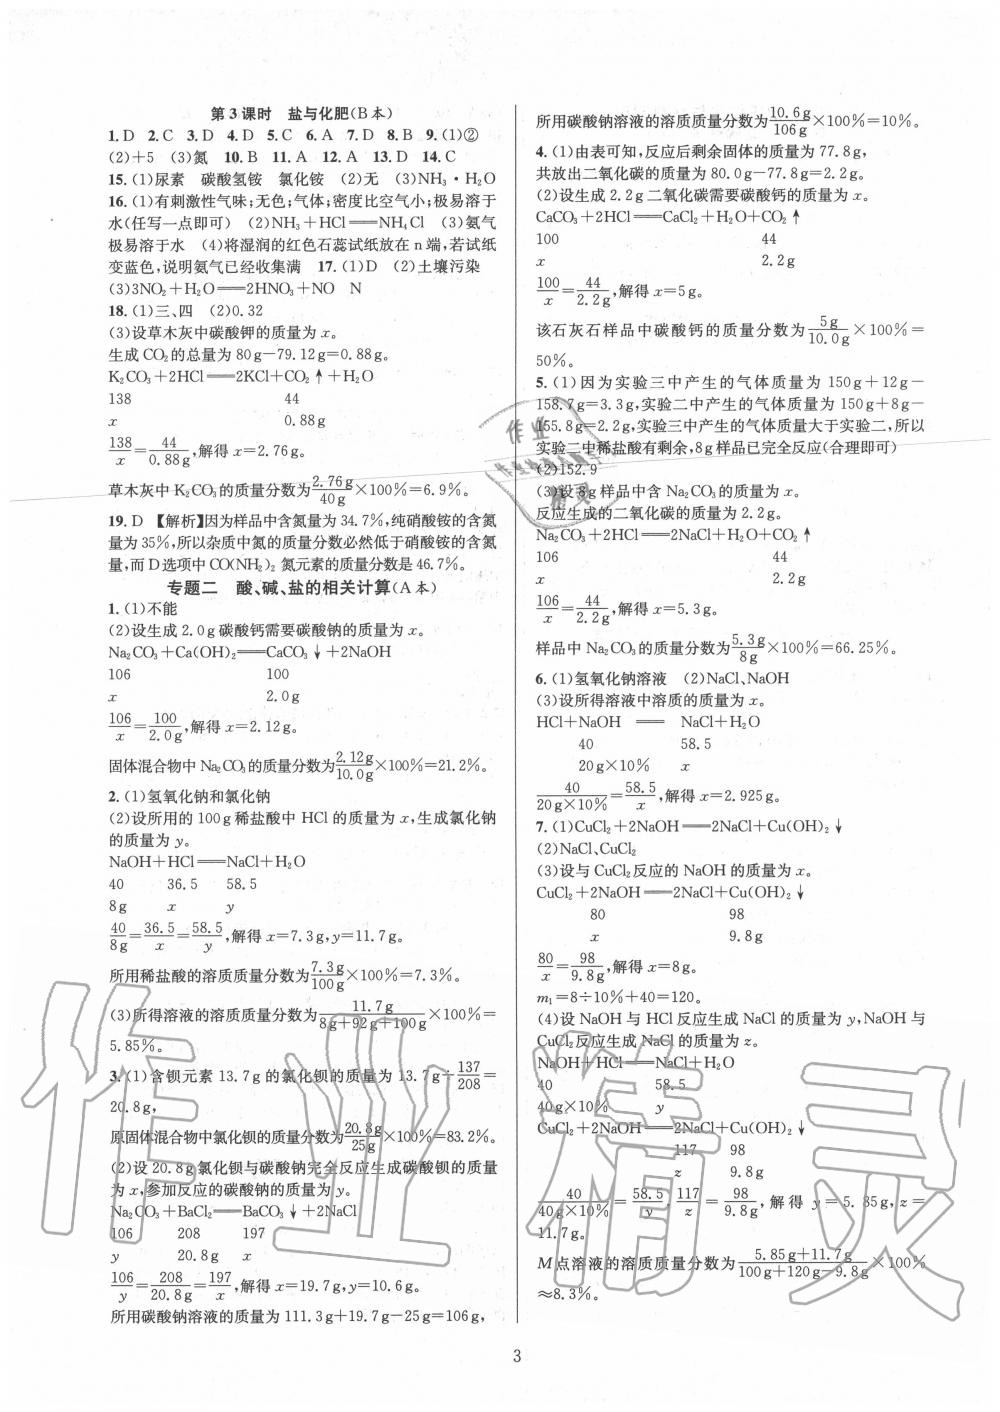 第3课时 盐与化肥(B本)
1. D 2. C 3. D 4. D 5. C 6. A 7. D 8. B 9. (1)②
(2)+5 (3)氮 10. B 11. A 12. A 13. D 14. C
15. (1)尿素 碳酸氢铵 氯化铵 (2)无 (3)NH₃·H₂O
16. (1)有刺激性气味;无色;气体;密度比空气小;极易溶于
水(任写一点即可) (2)NH₃+HCl══NH₄Cl (3)氨气
极易溶于水 (4)将湿润的红色石蕊试纸放在n端,若试纸
变蓝色,说明氨气已经收集满 17. (1)D (2)土壤污染
(3)3NO₂+H₂O══2HNO₃+NO N
18. (1)三、四 (2)0.32
(3)设草木灰中碳酸钾的质量为x。
生成CO₂的总量为80g-79.12g=0.88g。
K₂CO₃+2HCl══2KCl+CO₂↑+H₂O
138 44
x 0.88g
138/x=44/0.88g,解得x=2.76g。
草木灰中K₂CO₃的质量分数为2.76g/40g×100%=6.9%。
19. D 【解析】因为样品中含氮量为34.7%,纯硝酸铵的含氮
量为35%,所以杂质中氮的质量分数必然低于硝酸铵的含氮
量,而D选项中CO(NH₂)₂氮元素的质量分数是46.7%。
专题二 酸、碱、盐的相关计算(A本)
1. (1)不能
(2)设生成2.0g碳酸钙需要碳酸钠的质量为x。
Na₂CO₃+Ca(OH)₂══CaCO₃↓+2NaOH
106 100
x 2.0g
106/x=100/2.0g,解得x=2.12g。
固体混合物中Na₂CO₃的质量分数为2.12g/10.0g×100%=21.2%。
2. (1)氢氧化钠和氯化钠
(2)设所用的100g稀盐酸中HCl的质量为x,生成氯化钠
的质量为y。
NaOH+HCl══NaCl+H₂O
40 36.5 58.5
8g x y
40/8g=36.5/x=58.5/y,解得x=7.3g,y=11.7g。
所用稀盐酸的溶质质量分数为7.3g/100g×100%=7.3%。
(3)所得溶液的溶质质量分数为11.7g/8g+92g+100g×100%=
5.85%。
3. (1)含钡元素13.7g的氯化钡的质量为13.7g÷137/208=
20.8g,
原固体混合物中氯化钡的质量分数为20.8g/25g×100%=83.2%。
(2)设20.8g氯化钡与碳酸钠完全反应生成碳酸钡的质量
为x,参加反应的碳酸钠的质量为y。
Na₂CO₃+BaCl₂══BaCO₃↓+2NaCl
106 208 197
y 20.8g x
106/y=208/20.8g=197/x,解得x=19.7g,y=10.6g。
所用碳酸钠溶液的质量为111.3g+19.7g-25g=106g,
所用碳酸钠溶液的溶质质量分数为10.6g/106g×100%=10%。
4. (1)由表可知,反应后剩余固体的质量为77.8g,
共放出二氧化碳的质量为80.0g-77.8g=2.2g。
(2)设生成2.2g二氧化碳需要碳酸钙的质量为x。
CaCO₃+2HCl══CaCl₂+H₂O+CO₂↑
100 44
x 2.2g
100/x=44/2.2g,解得x=5g。
该石灰石样品中碳酸钙的质量分数为5g/10.0g×100%=
50%。
5. (1)因为实验三中产生的气体质量为150g+12g-
158.7g=3.3g,实验二中产生的气体质量为150g+8g-
155.8g=2.2g,实验三中产生的气体质量大于实验二,所以
实验二中稀盐酸有剩余,8g样品已完全反应(合理即可)
(2)152.9
(3)设8g样品中含Na₂CO₃的质量为x。
反应生成的二氧化碳的质量为2.2g。
Na₂CO₃+2HCl══2NaCl+H₂O+CO₂↑
106 44
x 2.2g
106/x=44/2.2g,解得x=5.3g。
样品中Na₂CO₃的质量分数为5.3g/8g×100%=66.25%。
6. (1)氢氧化钠溶液 (2)NaCl、NaOH
(3)设所得溶液中溶质的质量为x。
HCl+NaOH══NaCl+H₂O
40 58.5
20g×10% x
40/20g×10%=58.5/x,解得x=2.925g。
7. (1)CuCl₂+2NaOH══2NaCl+Cu(OH)₂↓
(2)NaCl、CuCl₂
(3)设与CuCl₂反应的NaOH的质量为x。
CuCl₂+2NaOH══2NaCl+Cu(OH)₂↓
80 98
x 9.8g
80/x=98/9.8g,解得x=8g。
m₁=8÷10%+40=120。
(4)设NaOH与HCl反应生成NaCl的质量为y,NaOH与
CuCl₂反应生成NaCl的质量为z。
NaOH+HCl══NaCl+H₂O
40 58.5
40g×10% y
CuCl₂+2NaOH══2NaCl+Cu(OH)₂↓
117 98
z 9.8g
40/40g×10%=58.5/y,117/z=98/9.8g,解得y=5.85g,z=
11.7g。
M点溶液的溶质质量分数为5.85g+11.7g/100g+120g-9.8g×100%
≈8.3%。
3
作业精灵
作业
精灵